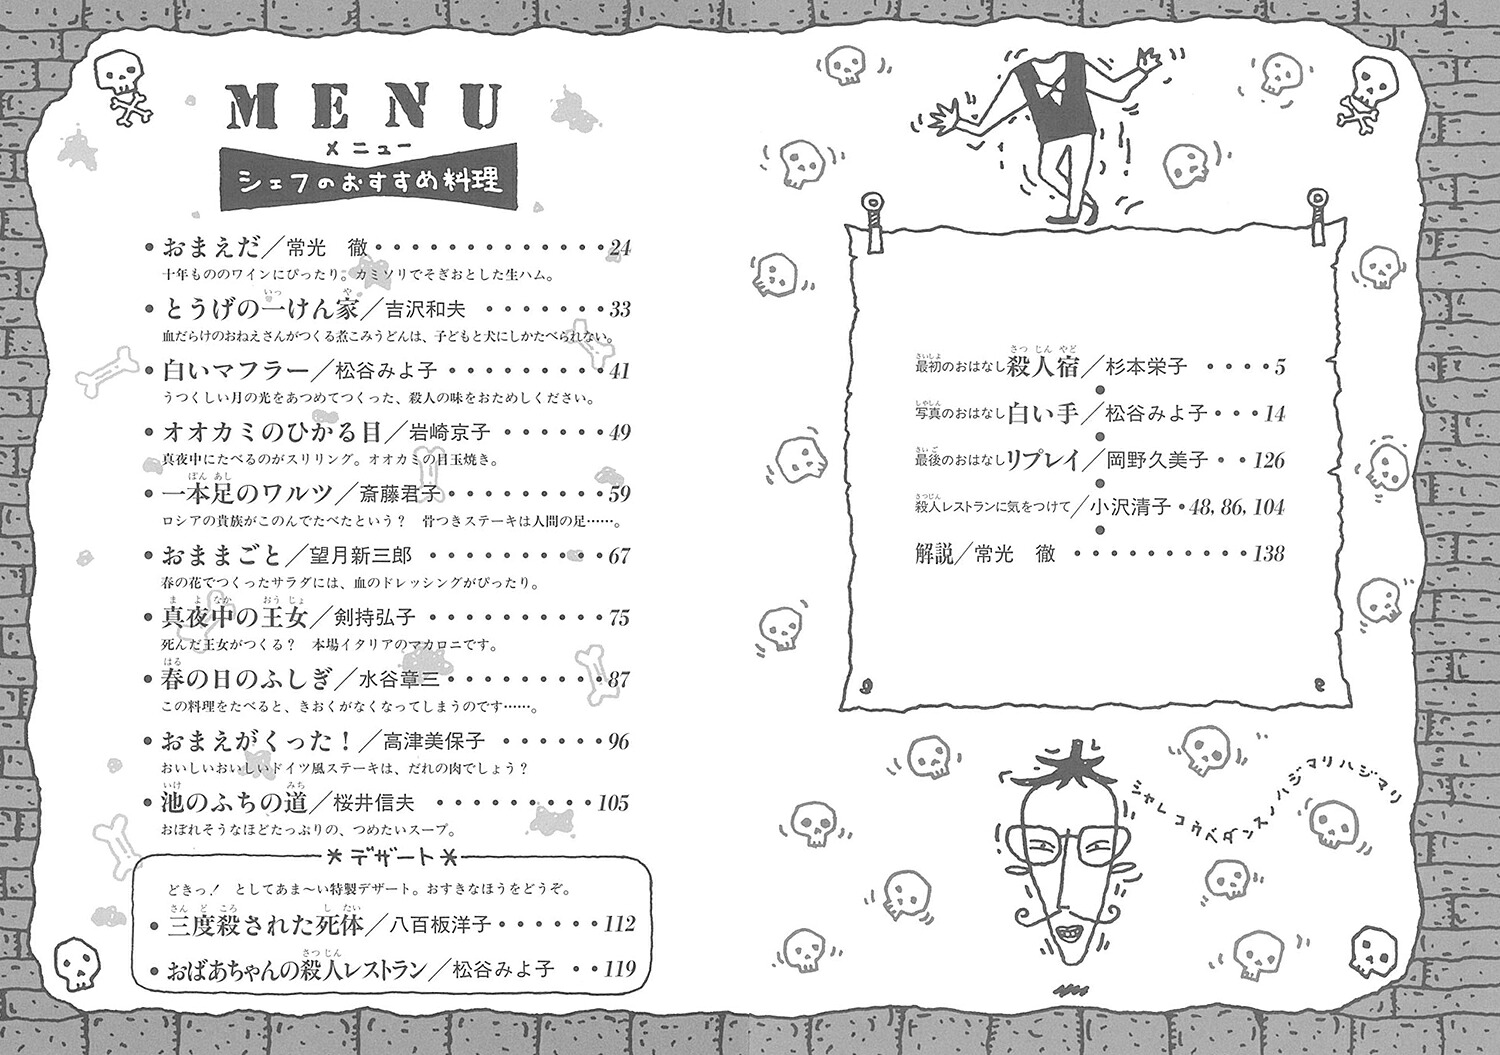 MENU
メニュー
シェフのおすすめ料理
●おまえだ／常光　徹・・・・・・・・・・・・・24
十年もののワインにぴったり。カミソリでそぎおとした生ハム。
●とうげの一けん家／吉沢和夫　・・・・・・・33
血だらけのおねえさんがつくる煮こみうどんは、子どもと犬にしかたべられない。
●白いマフラー／松谷みよ子　・・・・・・・・41
うつくしい月の光をあつめてつくった、殺人の味をおためしください。
●オオカミのひかる目／岩崎京子　・・・・・・49
真夜中にたべるのがスリリング。オオカミの目玉焼き。
●一本足のワルツ／斎藤君子・・・・・・・・・59
ロシアの貴族がこのんでたべたという？　骨つきステーキは人間の足……。
●おままごと／望月新三郎　・・・・・・・・・67
春の花でつくったサラダには、血のドレッシングがぴったり。
●真夜中の王女／剣持弘子　・・・・・・・・・75
死んだ王女がつくる？　本場イタリアのマカロニです。
●春の日のふしぎ／水谷章三・・・・・・・・・87
この料理をたべると、きおくがなくなってしまうのです……。
●おまえがくった！／高津美保子　・・・・・・96
おいしいおいしいドイツ風ステーキは、だれの肉でしょう？
●池のふちの道／桜井信夫　・・・・・・・・・105
おぼれそうなほどたっぷりの、つめたいスープ。
＊デザート＊
どきっ！　としてあま〜い特製デザート。おすきなほうをどうぞ。
●三度殺された死体／八百板洋子・・・・・・112
●おばあちゃんの殺人レストラン／松谷みよ子　・・119
最初のおはなし殺人宿／杉本栄子　・・・・5
●
写真のおはなし白い手／松谷みよ子・・・14
●
最後のおはなしリプレイ／岡野久美子・・126
●
殺人レストランに気をつけて／小沢清子・48, 86, 104
●
解説／常光　徹　・・・・・・・・・・138
シャレコウベダンスノハジマリハジマリ